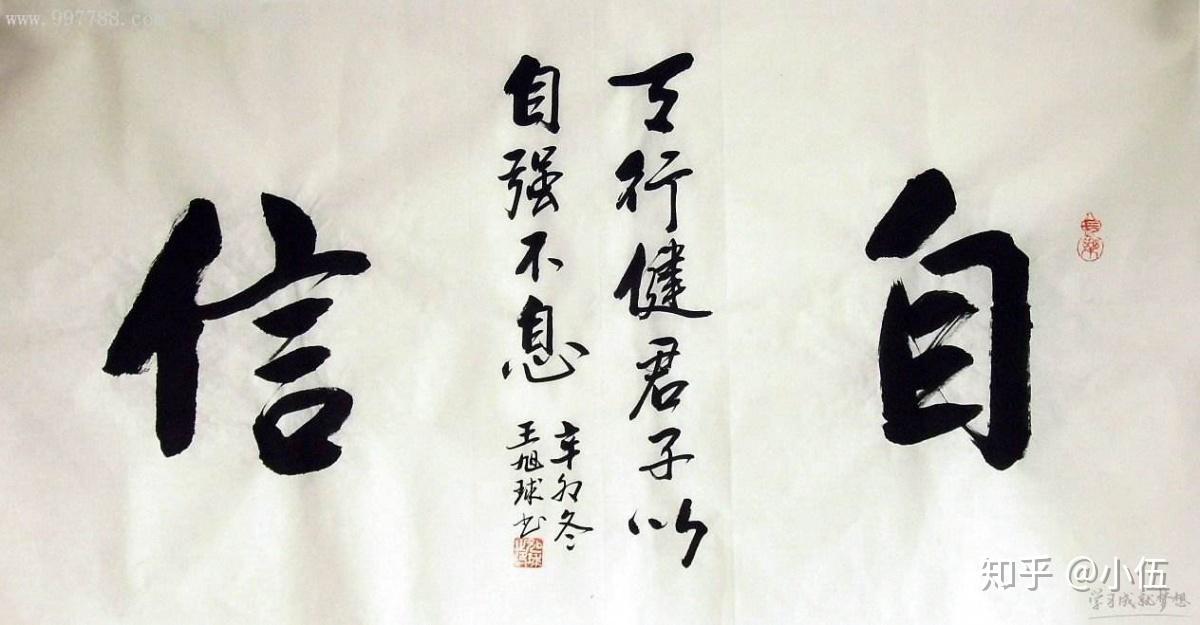 www.997788.com
自
天行健君子以
自强不息
辛卯冬
王旭球书
信
知乎 @小伍
学习成就梦想